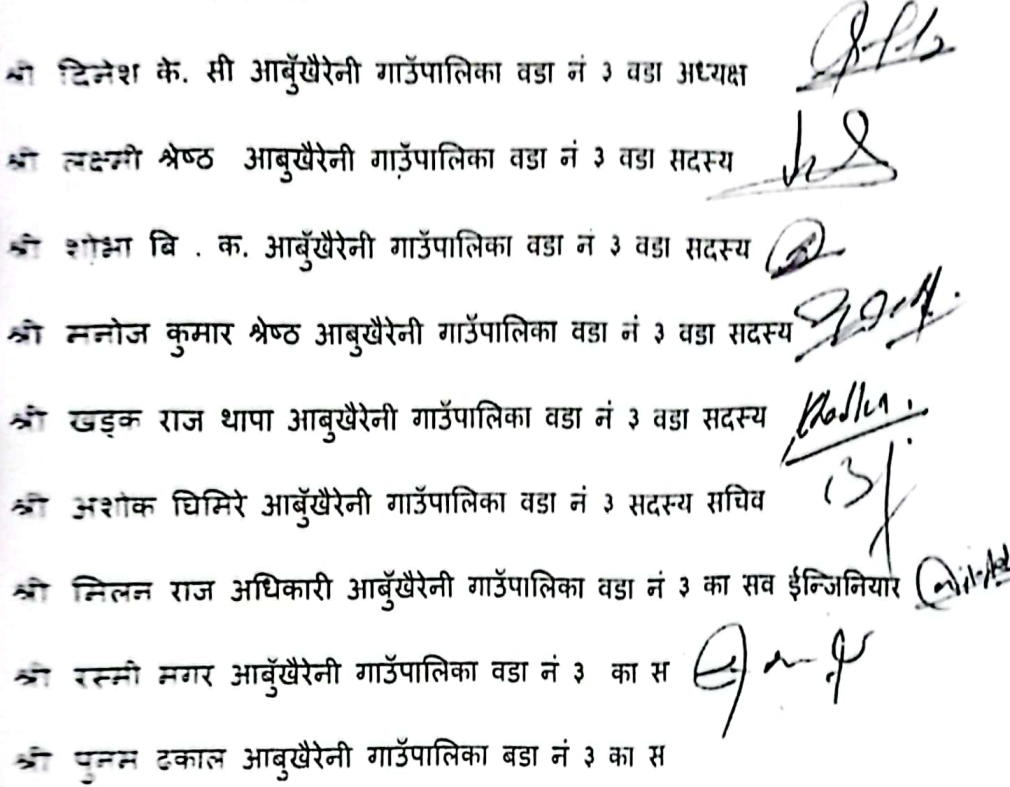 श्री दिनेश के. सी आबुँखैरेनी गाउँपालिका वडा नं ३ वडा अध्यक्ष
श्री लक्ष्मी श्रेष्ठ आबुखैरेनी गाउँपालिका वडा नं ३ वडा सदस्य
श्री शोभा बि . क. आबुँखैरेनी गाउँपालिका वडा नं ३ वडा सदस्य
श्री मनोज कुमार श्रेष्ठ आबुखैरेनी गाउँपालिका वडा नं ३ वडा सदस्य
श्री खड्क राज थापा आबुखैरेनी गाउँपालिका वडा नं ३ वडा सदस्य
श्री अशोक घिमिरे आबुँखैरेनी गाउँपालिका वडा नं ३ सदस्य सचिव
श्री मिलन राज अधिकारी आबुँखैरेनी गाउँपालिका वडा नं ३ का सव ईन्जिनियार
श्री रस्मी मगर आबुँखैरेनी गाउँपालिका वडा नं ३ का स
श्री पुनम ढकाल आबुखैरेनी गाउँपालिका बडा नं ३ का स